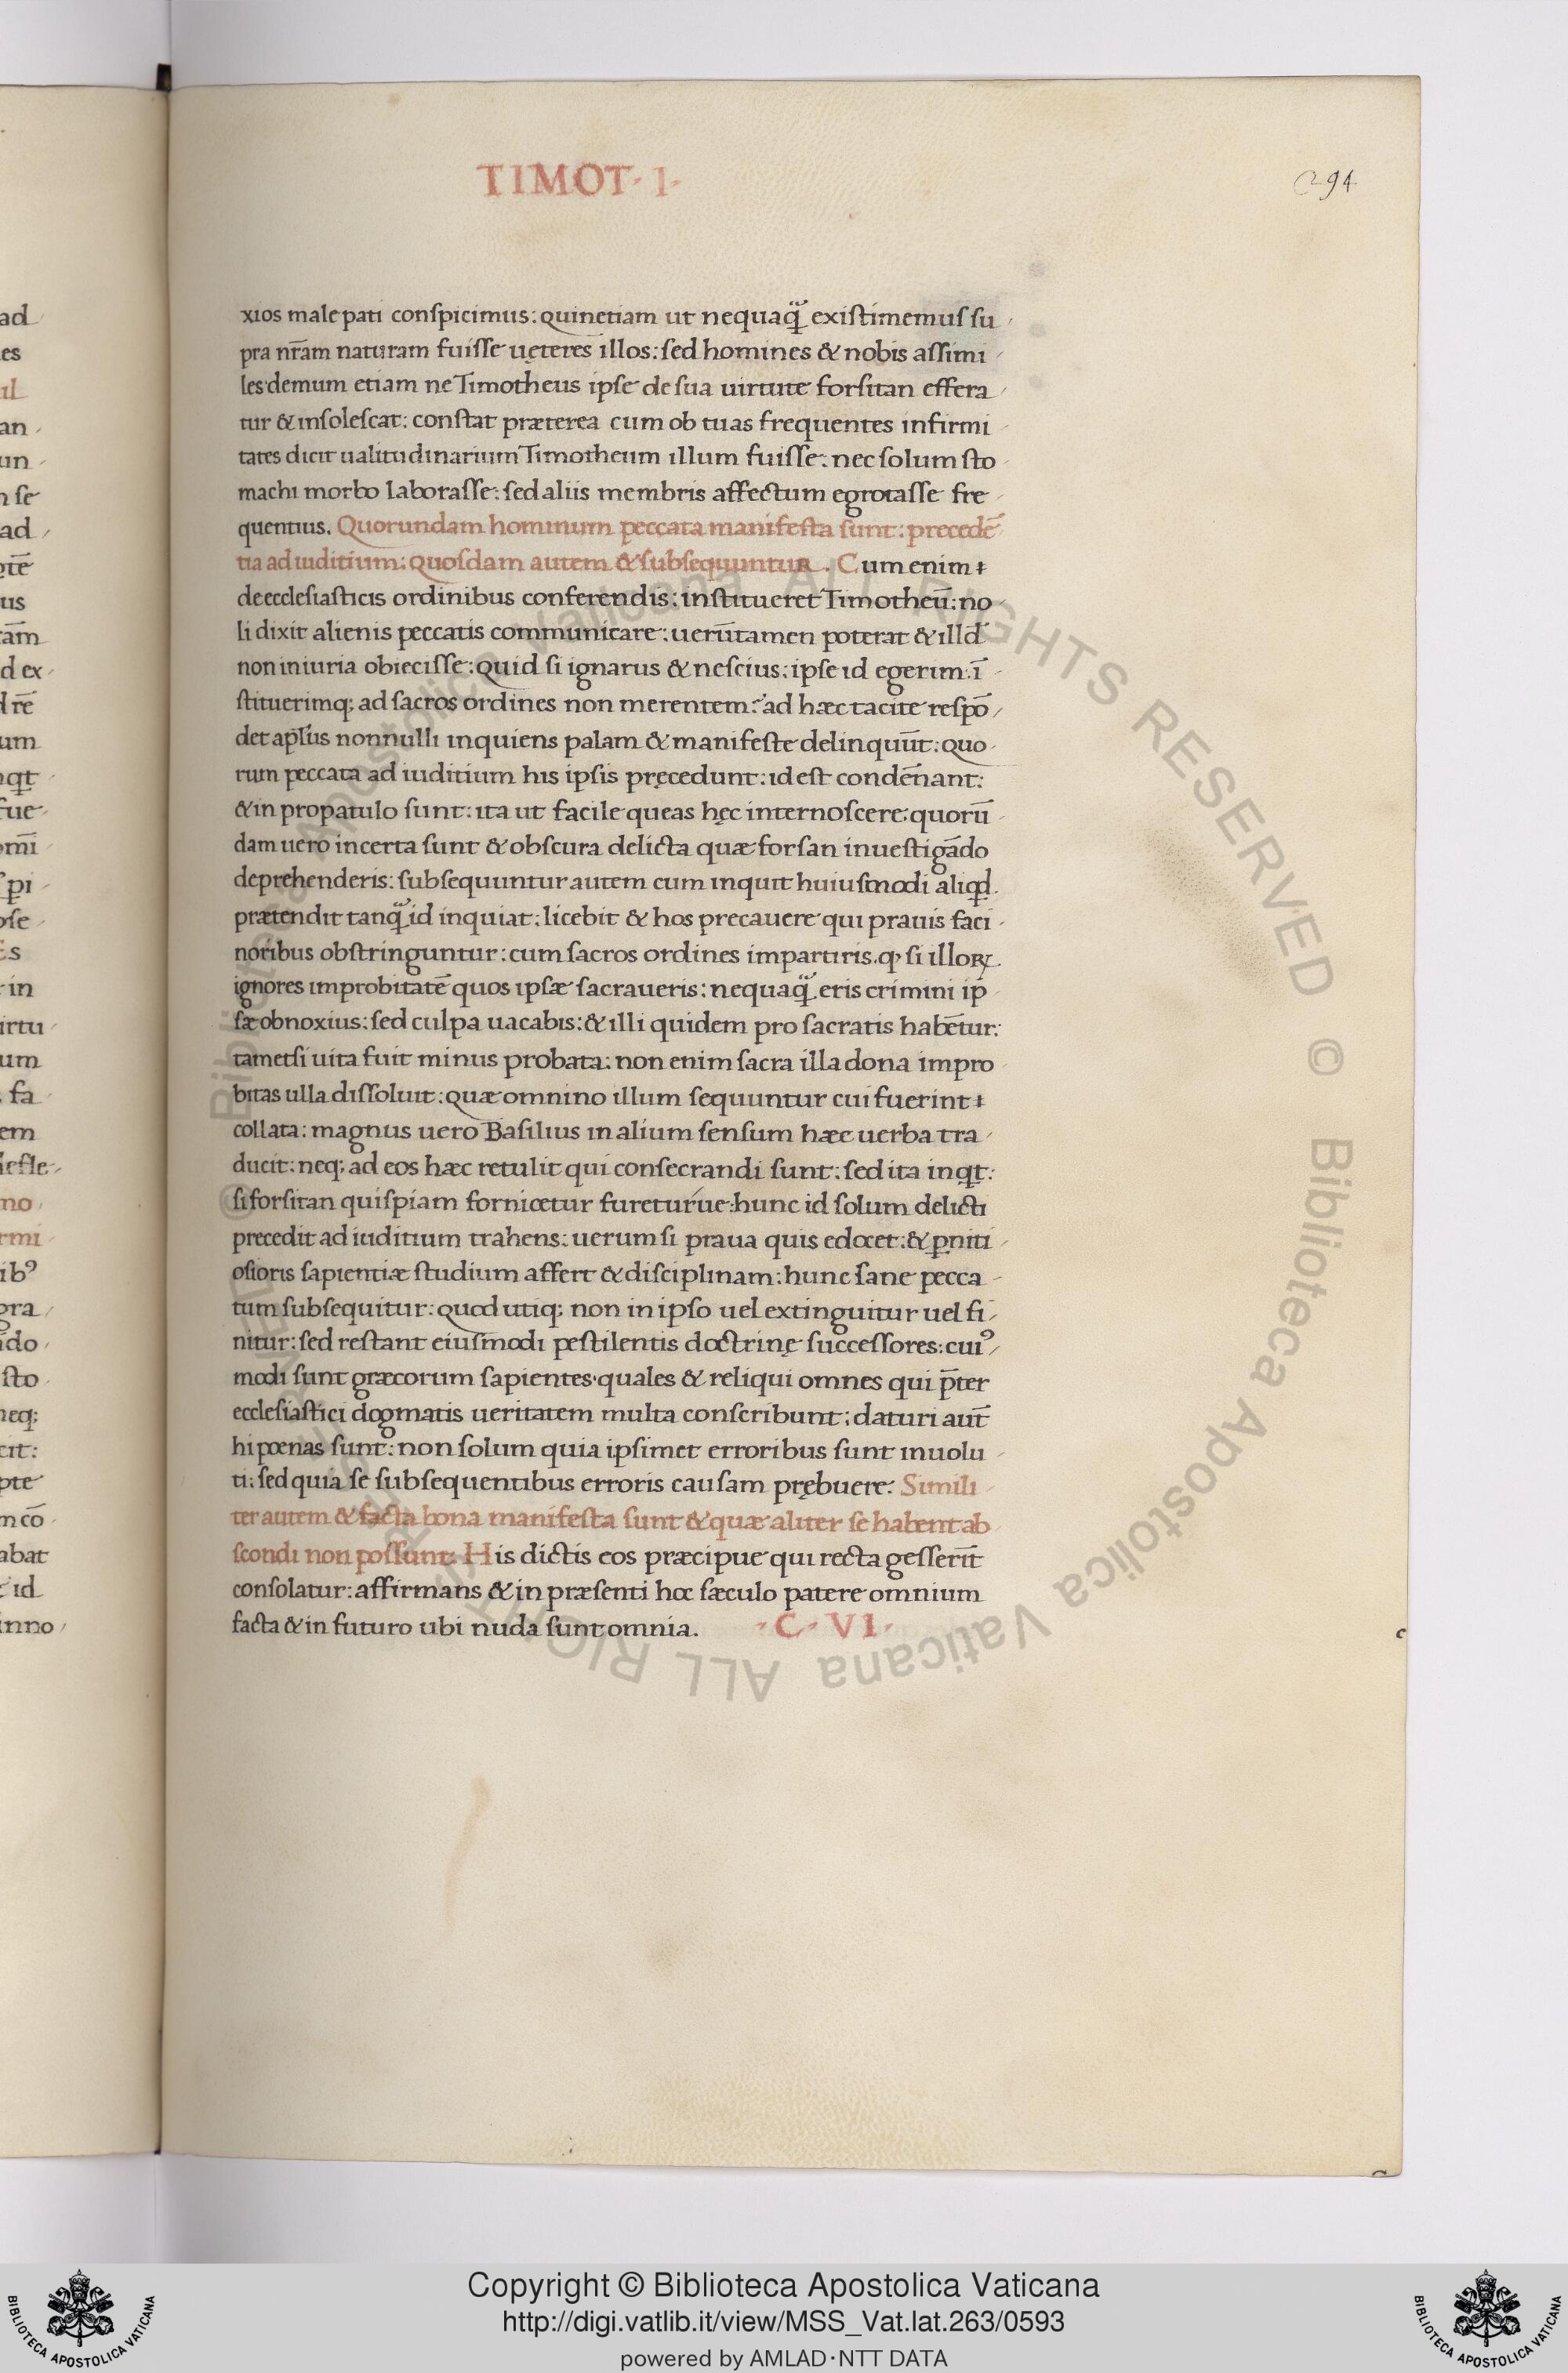 TIMOT· I·
294
xios male pati conspicimus: quinetiam ut nequaq̃ existimemus su
pra nr̃am naturam fuisse ueteres illos: sed homines & nobis assimi
les demum etiam ne Timotheus ipse de sua uirtute forsitan effera
tur & insolescat: constat præterea cum ob tuas frequentes infirmi
tates dicit ualitudinarium Timotheum illum fuisse: nec solum sto
machi morbo laborasse: sed aliis membris affectum egrotasse fre
quentius. Quorundam hominum peccata manifesta sunt: precedẽ
tia ad iuditium: quosdam autem & subsequuntur. Cum enim
de ecclesiasticis ordinibus conferendis: institueret Timotheũ: no
li dixit alienis peccatis communicare: uerũtamen poterat & illd̃
non iniuria obiecisse: quid si ignarus & nescius: ipse id egerim: ĩ
stituerimq; ad sacros ordines non merentem? ad hæc tacite respõ
det apl̃us nonnulli inquiens palam & manifeste delinquũt: quo
rum peccata ad iuditium his ipsis pręcedunt: id est condẽnant:
& in propatulo sunt: ita ut facile queas hęc internoscere: quorũ
dam uero incerta sunt & obscura delicta quæ forsan inuestigãdo
deprehenderis: subsequuntur autem cum inquit huiusmodi aliqd
prætendit tanq̃ id inquiat: licebit & hos precauere qui prauis faci
noribus obstringuntur: cum sacros ordines impartiris. ꝙ si illoꝝ
ignores improbitatẽ quos ipsæ sacraueris: nequaq̃ eris crimini ip
sæ obnoxius: sed culpa uacabis: & illi quidem pro sacratis habẽtur:
tametsi uita fuit minus probata: non enim sacra illa dona impro
bitas ulla dissoluit: quæ omnino illum sequuntur cui fuerint
collata: magnus uero Basilius in alium sensum hæc uerba tra
ducit: neq; ad eos hæc retulit qui consecrandi sunt: sed ita inqt:
si forsitan quispiam fornicetur fureturúe: hunc id solum delicti
precedit ad iuditium trahens: uerum si praua quis edocet: & ꝑniti
osioris sapientiæ studium affert & disciplinam: hunc sane pecca
tum subsequitur: quod utiq; non in ipso uel extinguitur uel fi
nitur: sed restant eiusmodi pestilentis doctrinę successores: cuiꝰ
modi sunt græcorum sapientes· quales & reliqui omnes qui p̃ter
ecclesiastici dogmatis ueritatem multa conscribunt: daturi aut̃
hi pœnas sunt: non solum quia ipsimet erroribus sunt inuolu
ti: sed quia se subsequentibus erroris causam prębuere: Simili
ter autem & facta bona manifesta sunt & quæ aliter se habent ab
scondi non possunt: His dictis eos præcipue qui recta gesserĩt
consolatur: affirmans & in præsenti hoc sæculo patere omnium
facta & in futuro ubi nuda sunt omnia. ·C· VI·
Copyright © Biblioteca Apostolica Vaticana
http://digi.vatlib.it/view/MSS_Vat.lat.263/0593
powered by AMLAD·NTT DATA